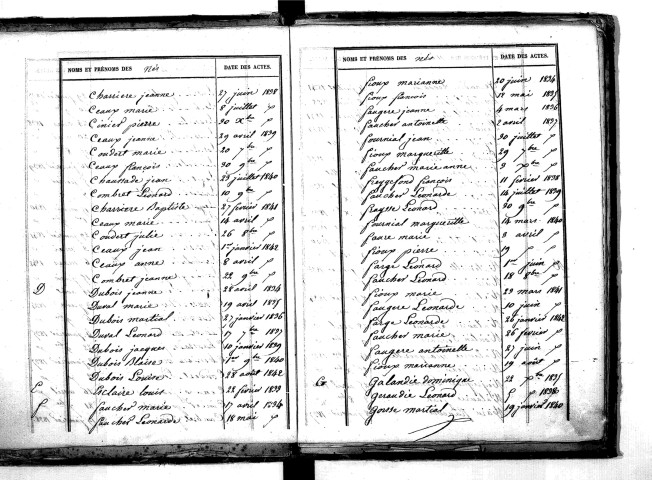 NOMS ET PRÉNOMS DES Nés DATE DES ACTES.
Charriere jeanne 27 juin 1838
Ceaux marie 8 juillet p
Cinier pierre 30 Xbre p
Ceaux jeanne 29 avril 1839
Coudert marie 20 7bre p
Ceaux françois 30 9bre p
Chaussade jean 23 juillet 1840
Combret Léonard 10 9bre p
Charriere Baptiste 27 février 1841
Ceaux marie 14 avril p
Coudert julie 26 8bre p
Ceaux jean 1er janvier 1842
Ceaux anne 8 avril p
Combret jeanne 22 9bre p
D Dubois jeanne 28 avril 1834
Duval marie 19 avril 1835
Dubois martial 27 janvier 1836
Duval Léonard 17 7bre 1837
Dubois jacques 10 janvier 1839
Dubois Blaise 1er 9bre 1840
Dubois Louise 28 août 1842
E Eclaire louis 22 février 1833
f faucher marie 17 avril 1834
faucher Léonarde 18 mai p
NOMS ET PRÉNOMS DES nés DATE DES ACTES.
fioux marianne 20 juin 1834
fioux françois 12 mai 1835
faugere jeanne 4 mars 1836
faucher antoinette 2 avril 1837
fournial jean 30 juillet p
fioux marguerite 29 7bre p
faucher marie anne 3 Xbre p
freygefond françois 11 février 1838
faucher Léonarde 14 juillet 1839
fraysse Léonard 30 9bre p
fournial marguerite 14 mars 1840
faure marie 3 avril
fioux pierre 19 p p
farge Léonard 1er juin p
faucher Léonard 18 8bre p
fioux marie 29 mars 1841
faugere Léonarde 10 juin p
farge Léonarde 26 janvier 1842
faucher marie 26 février p
faugere antoinette 27 juin p
fioux marianne 19 août p
G Galandie dominique 22 1835
Geraudie Léonard 5 p 1838
Gorsse martial 19 janvier 1840